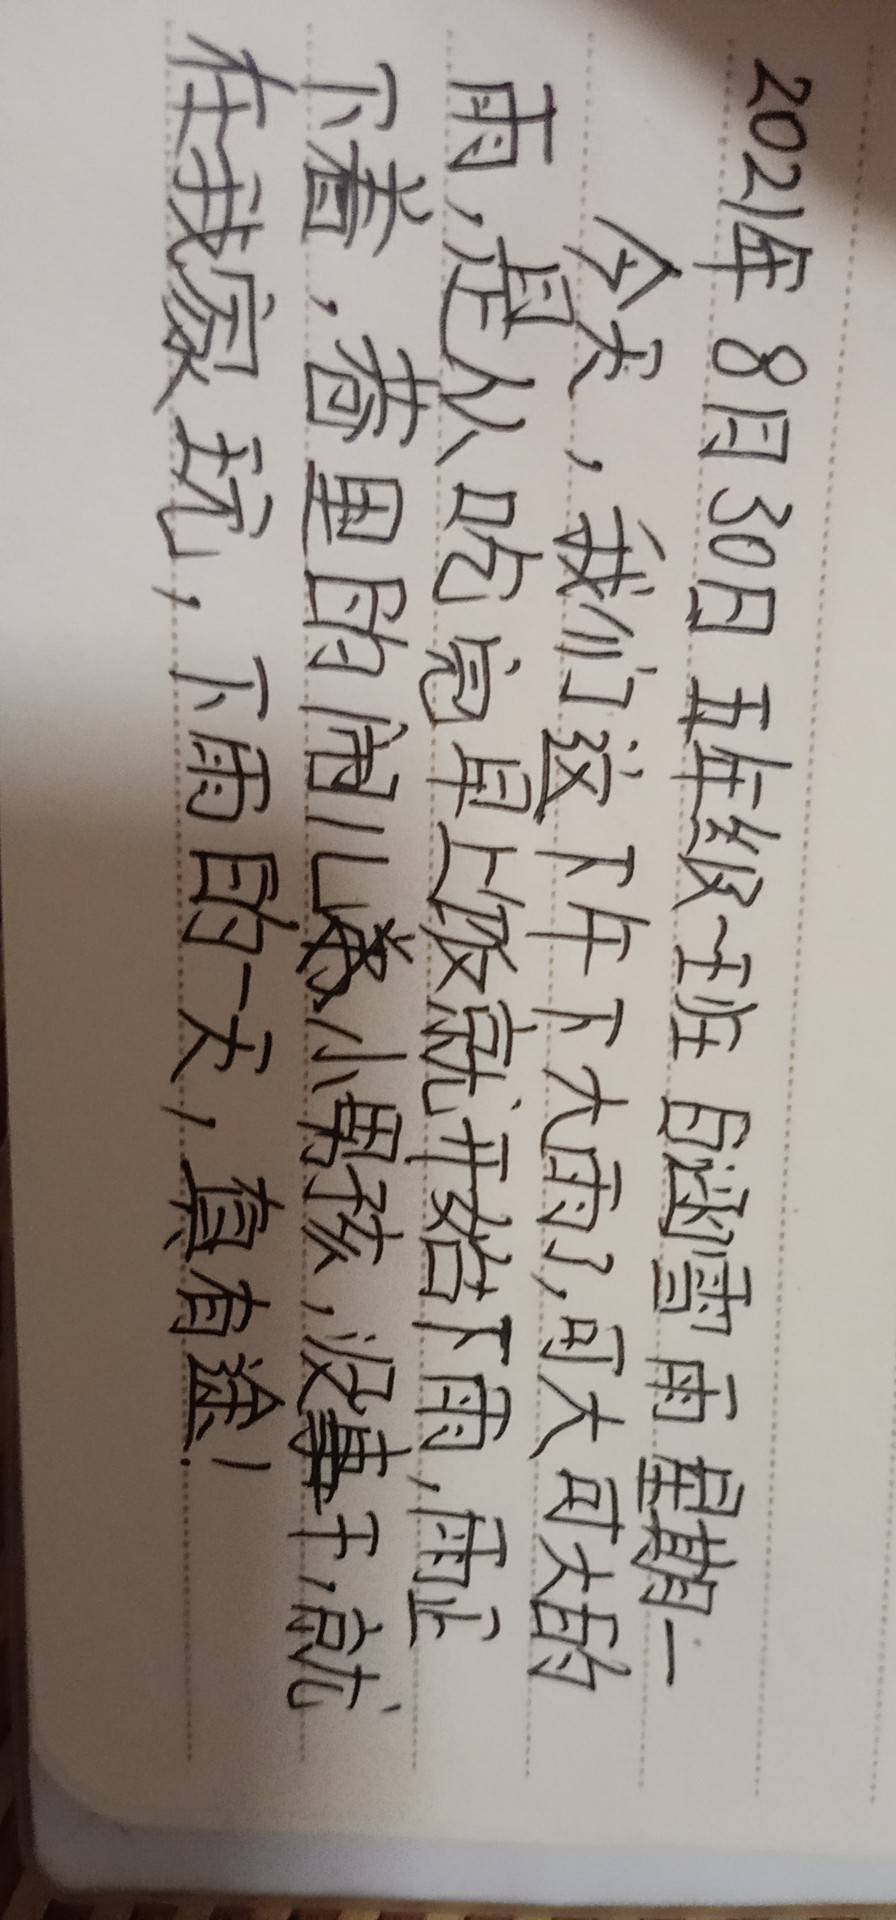 2021年 8月30日 五年级一班 白涵雪 雨 星期一
今天，我们这下午下大雨了，可大可大的
雨，是从吃完早上饭就开始下雨，雨正
下着，巷里的闹儿小男孩，没事干，就
在我家玩，下雨的一天，真有途！